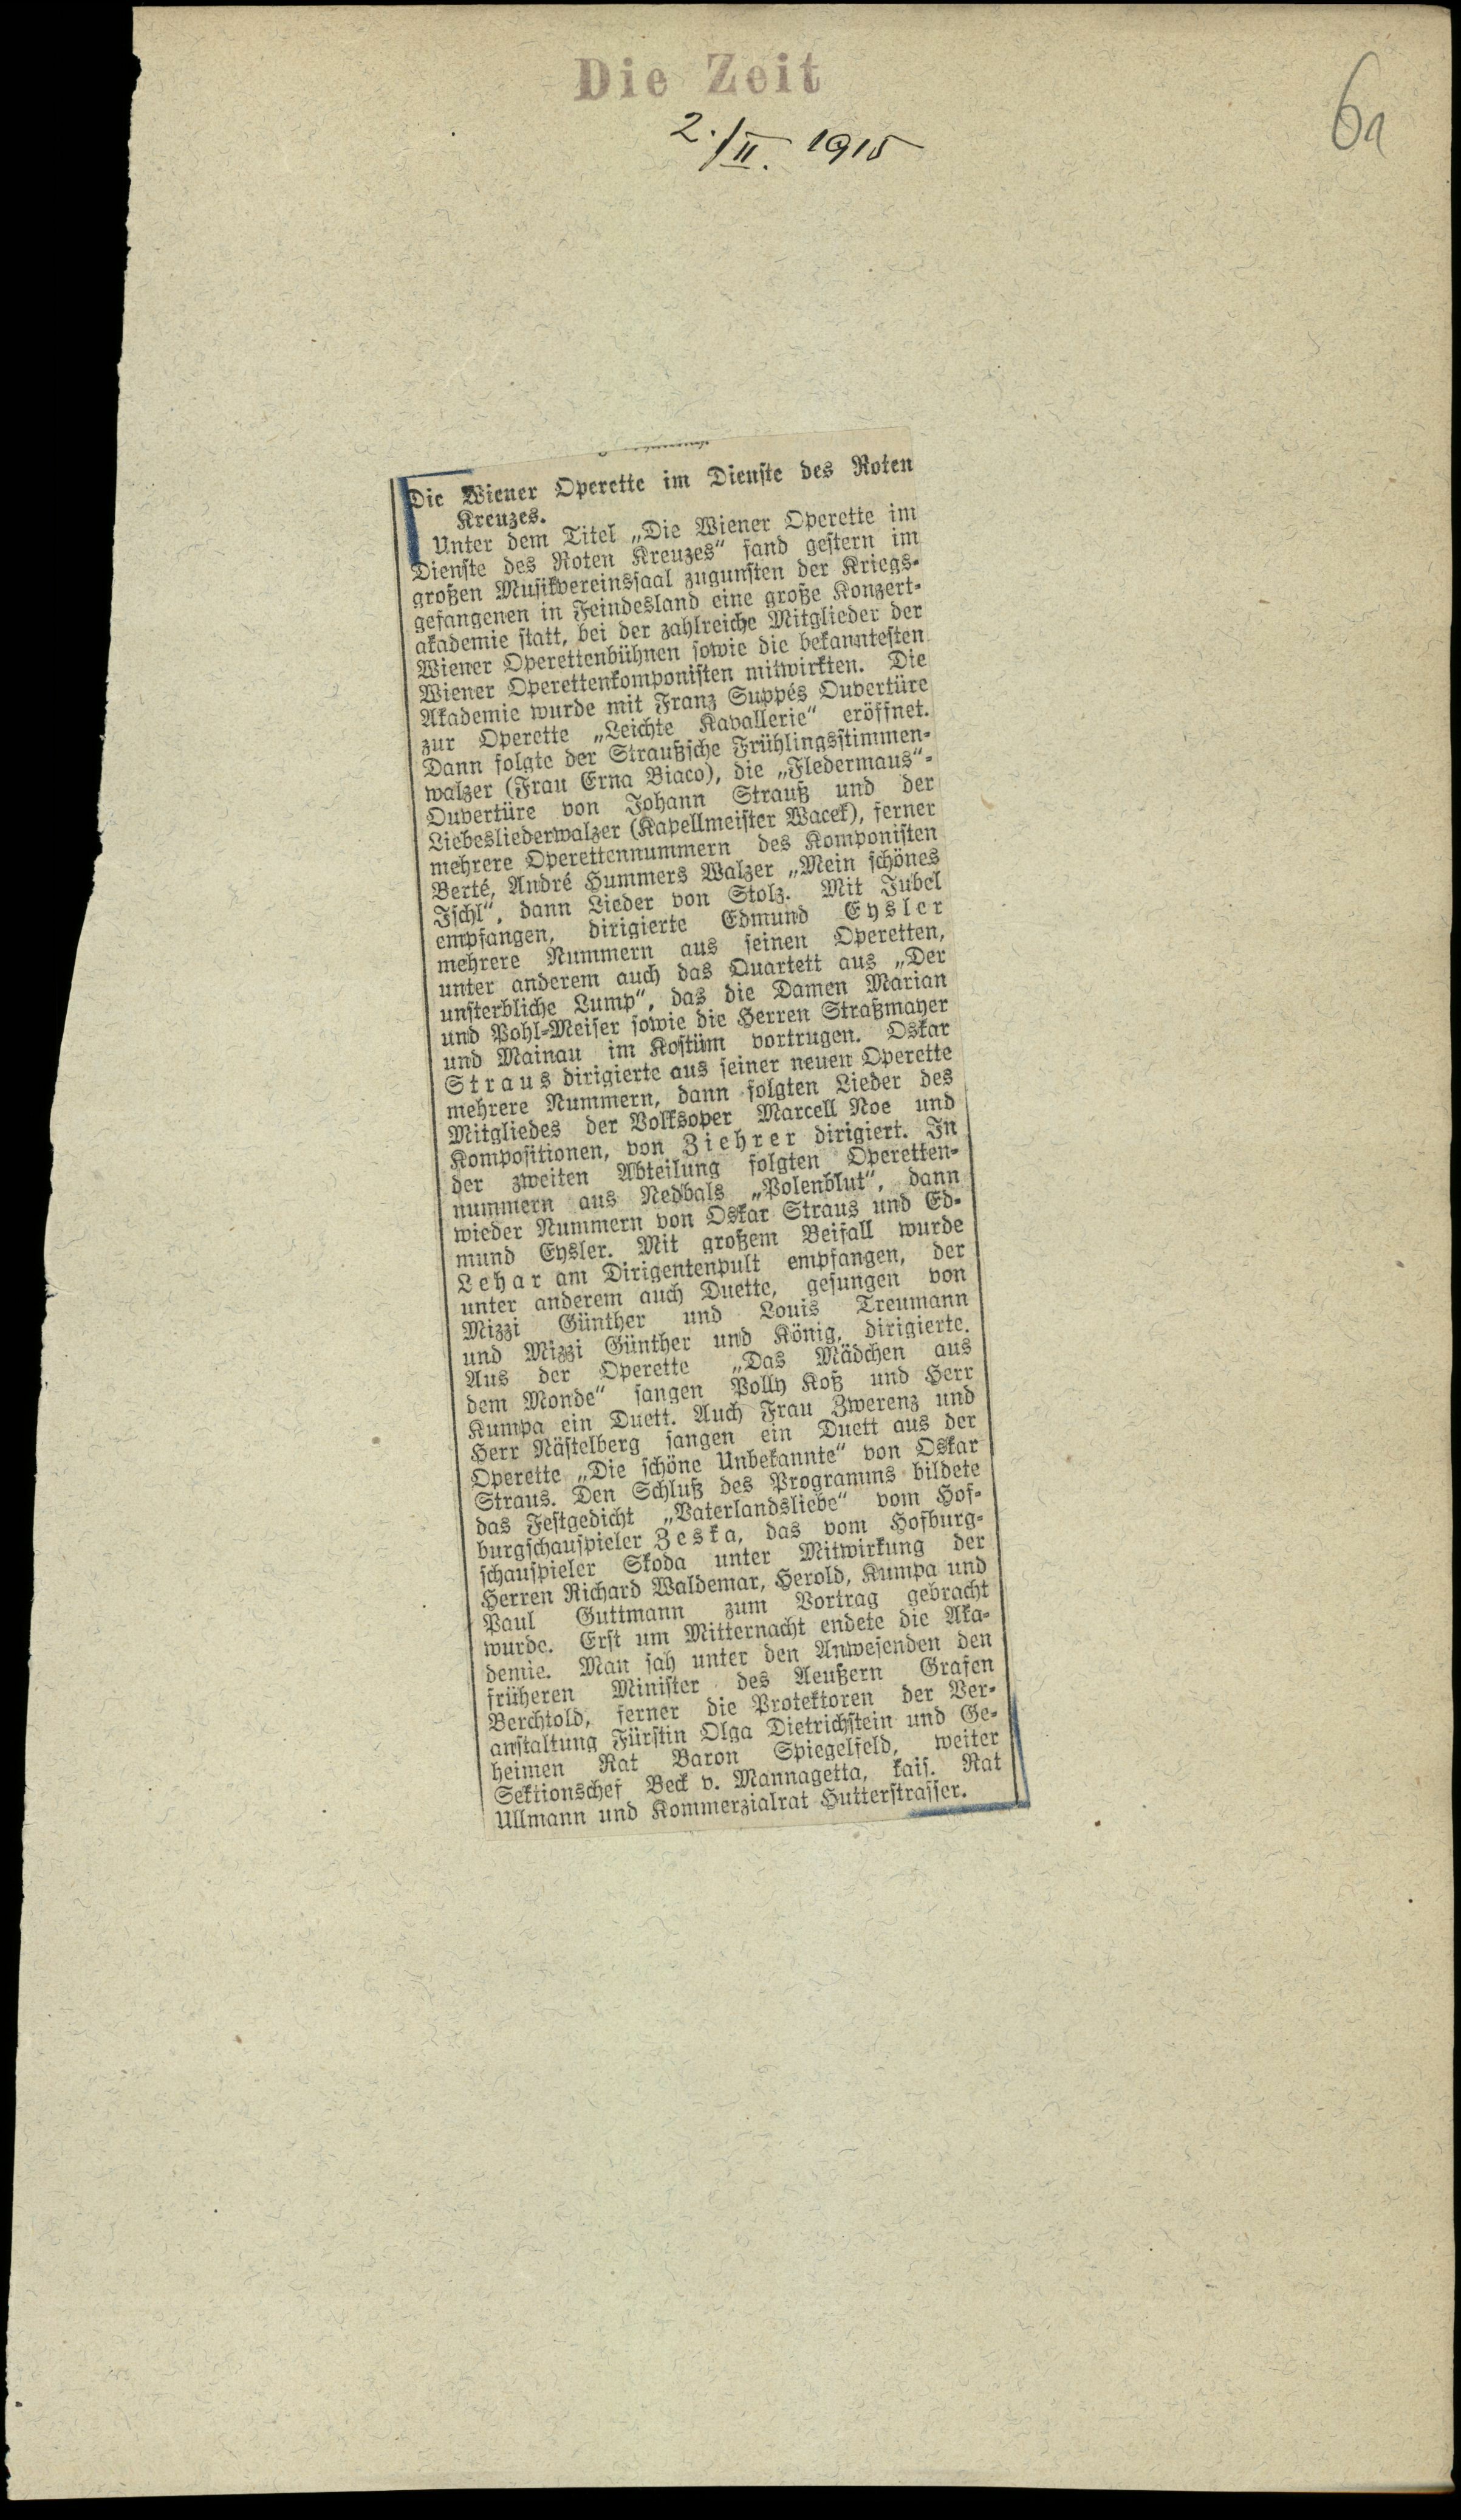 Die Zeit
2./II. 1915
6a
Die Wiener Operette im Dienste des Roten
Kreuzes.
Unter dem Titel „Die Wiener Operette im
Dienste des Roten Kreuzes“ fand gestern im
großen Musikvereinssaal zugunsten der Kriegs-
gefangenen in Feindesland eine große Konzert-
akademie statt, bei der zahlreiche Mitglieder der
Wiener Operettenbühnen sowie die bekanntesten
Wiener Operettenkomponisten mitwirkten. Die
Akademie wurde mit Franz Suppés Ouvertüre
zur Operette „Leichte Kavallerie“ eröffnet.
Dann folgte der Straußsche Frühlingsstimmen-
walzer (Frau Erna Biaco), die „Fledermaus“-
Ouvertüre von Johann Strauß und der
Liebesliederwalzer (Kapellmeister Wacek), ferner
mehrere Operettennummern des Komponisten
Berté, André Hummers Walzer „Mein schönes
Ischl“, dann Lieder von Stolz. Mit Jubel
empfangen, dirigierte Edmund Eysler
mehrere Nummern aus seinen Operetten,
unter anderem auch das Quartett aus „Der
unsterbliche Lump“, das die Damen Marian
und Pohl-Meiser sowie die Herren Straßmayer
und Mainau im Kostüm vortrugen. Oskar
Straus dirigierte aus seiner neuen Operette
mehrere Nummern, dann folgten Lieder des
Mitgliedes der Volksoper Marcell Noe und
Kompositionen, von Ziehrer dirigiert. In
der zweiten Abteilung folgten Operetten-
nummern aus Nedbals „Polenblut“, dann
wieder Nummern von Oskar Straus und Ed-
mund Eysler. Mit großem Beifall wurde
Lehar am Dirigentenpult empfangen, der
unter anderem auch Duette, gesungen von
Mizzi Günther und Louis Treumann
und Mizzi Günther und König, dirigierte.
Aus der Operette „Das Mädchen aus
dem Monde“ sangen Polly Koß und Herr
Kumpa ein Duett. Auch Frau Zwerenz und
Herr Nästelberg sangen ein Duett aus der
Operette „Die schöne Unbekannte“ von Oskar
Straus. Den Schluß des Programms bildete
das Festgedicht „Vaterlandsliebe“ vom Hof-
burgschauspieler Zeska, das vom Hofburg-
schauspieler Skoda unter Mitwirkung der
Herren Richard Waldemar, Herold, Kumpa und
Paul Guttmann zum Vortrag gebracht
wurde. Erst um Mitternacht endete die Aka-
demie. Man sah unter den Anwesenden den
früheren Minister des Aeußern Grafen
Berchtold, ferner die Protektoren der Ver-
anstaltung Fürstin Olga Dietrichstein und Ge-
heimen Rat Baron Spiegelfeld, weiter
Sektionschef Beck v. Mannagetta, kais. Rat
Ullmann und Kommerzialrat Hutterstrasser.